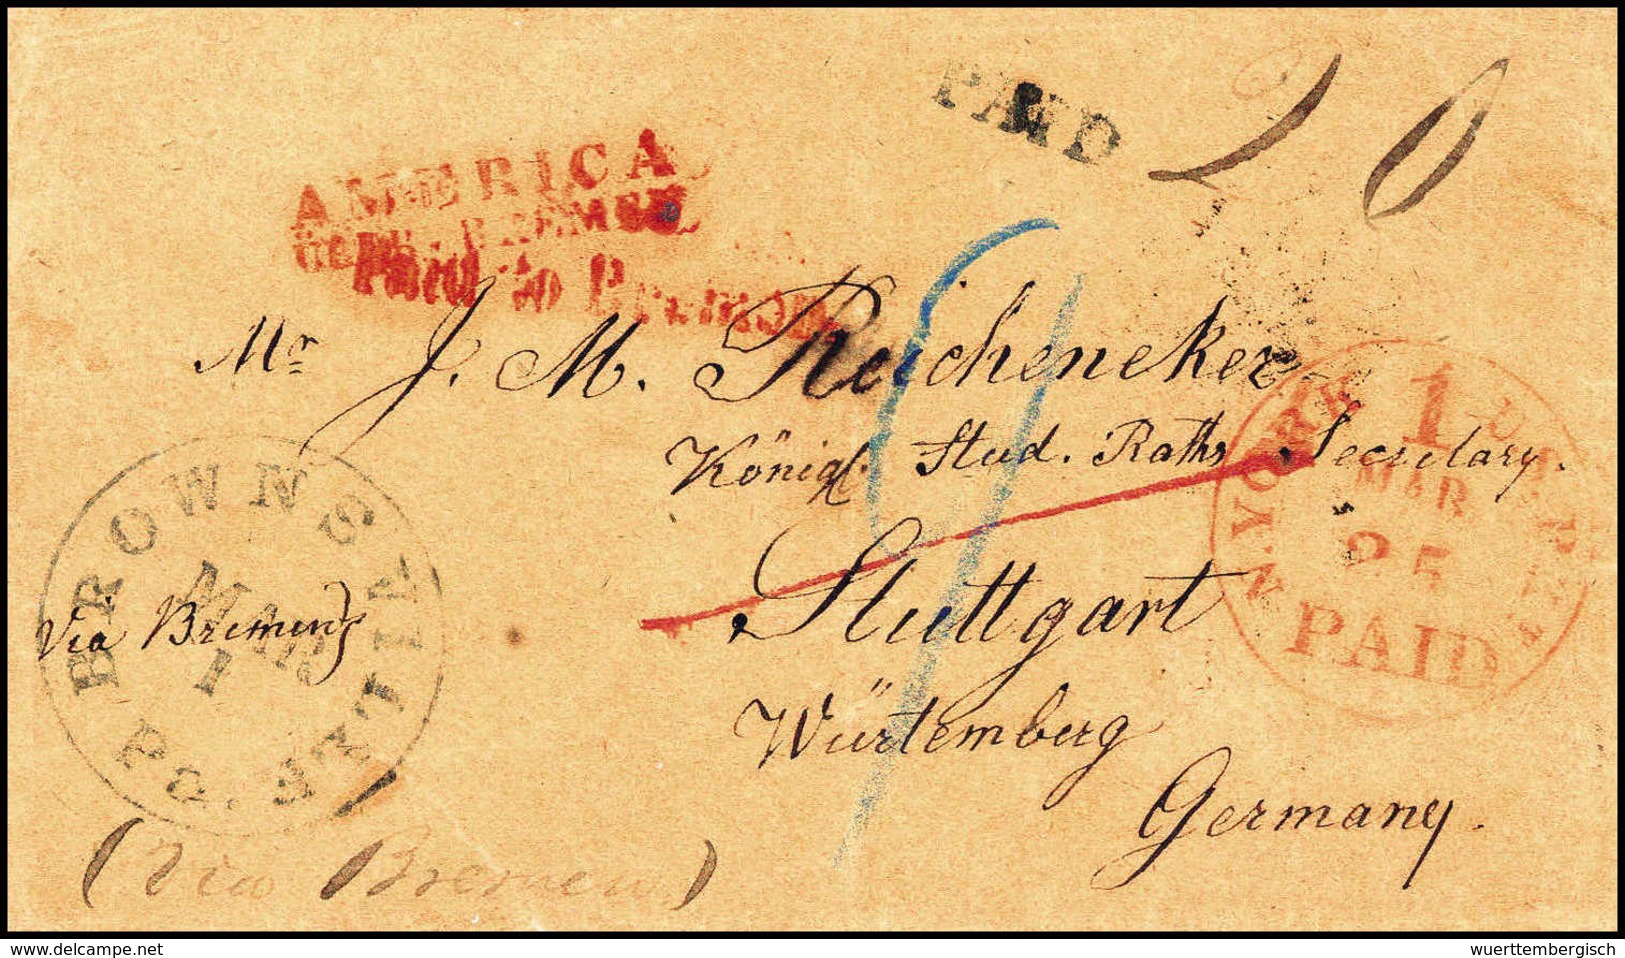 PAID
20
AMERICA
ÜBER BREMEN
Paid to Bremen
Mr J. M. Reicheneker
Königl. Stud. Raths Secretary.
Stuttgart
Würtemberg
Germany.
N. YORK 1 U.S. PKT
MAR
25
PAID
BROWNSVILLE Pa.
MAR
1
Via Bremen
(Via Bremen)
delcampe.net
wuerttembergisch